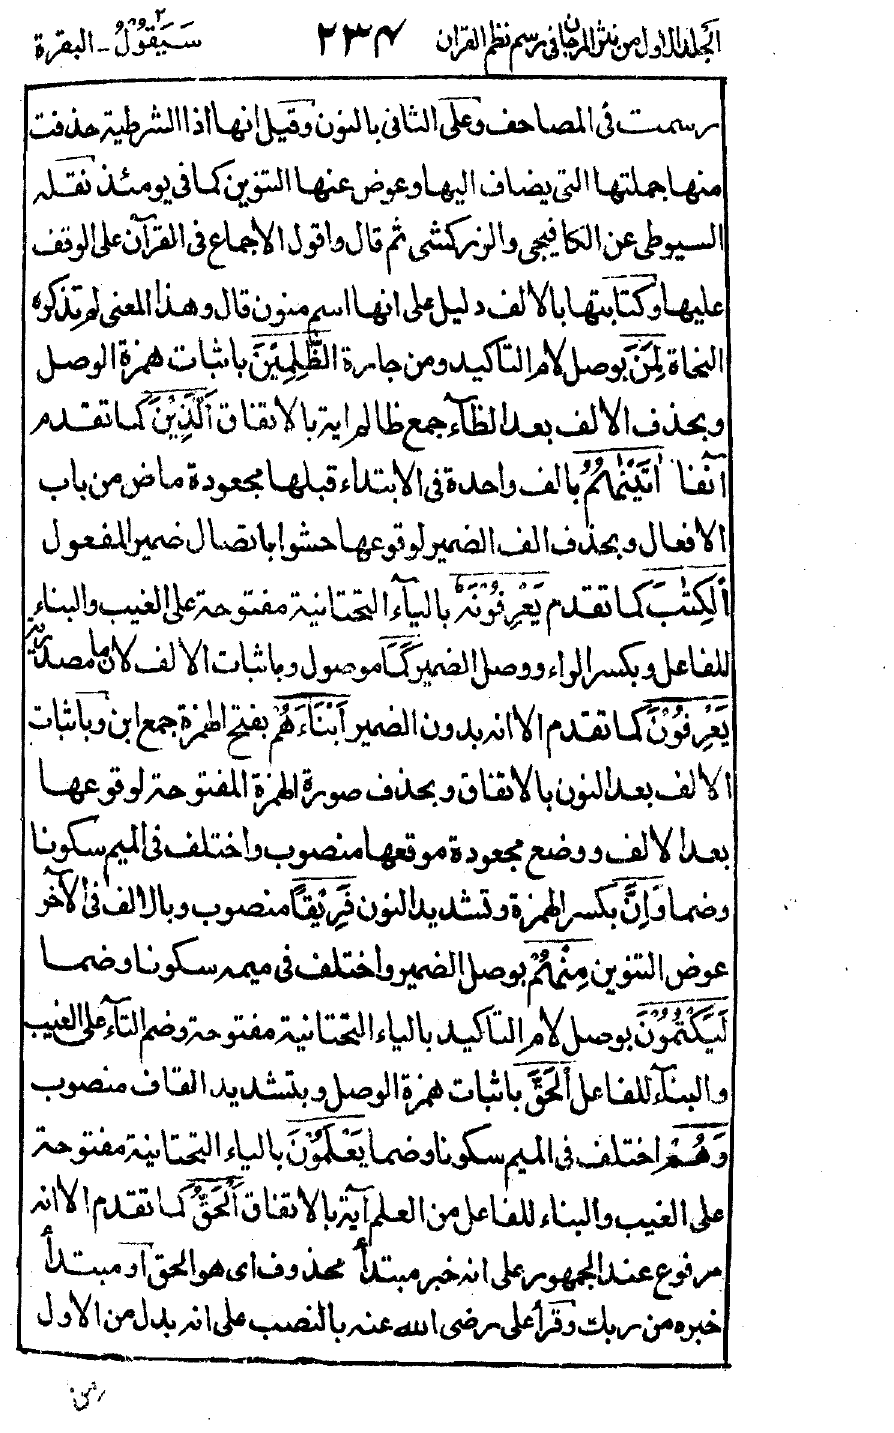 الجلد الاول من نثر المرجان فى رسم نظم القران ٢٣٤ سَيَقُوْلُ ٢ - البقرة
رسمت فى المصاحف وعلى الثانى بالنون وقيل انها اذا الشرطية حذفت
منها جملتها التى يضاف اليها وعوض عنها التنوين كما فى يومئذ نقله
السيوطى عن الكافيجى والزركشى ثم قال واقول الاجماع فى القرآن على الوقف
عليها وكتابتها بالالف دليل على انها اسم منون قال وهذا المعنى لم تذكره
النحاة لَمِنَ بوصل لام التاكيد ومن جارة الظّٰلِمِيْنَ باثبات همزة الوصل
وبحذف الالف بعد الظآء جمع ظالم اية بالاتفاق اَلَّذِيْنَ كما تقدم
آنفا اٰتَيْنٰهُمُ بالف واحدة فى الابتداء قبلها مجعودة ماض من باب
الافعال وبحذف الف الضمير لوقوعها حشوا باتصال ضمير المفعول
اَلْكِتٰبَ كما تقدم يَعْرِفُوْنَهٗ بالياء التحتانية مفتوحة على الغيب والبناء
للفاعل وبكسر الراء ووصل الضمير كَمَا موصول وباثبات الالف لان ما مصدرية
يَعْرِفُوْنَ كما تقدم الا انه بدون الضمير اَبْنَاءَهُمْ بفتح الهمزة جمع ابن وباثبات
الالف بعد النون بالاتفاق وبحذف صورة الهمزة المفتوحة لوقوعها
بعد الالف ووضع مجعودة موقعها منصوب واختلف فى الميم سكونا
وضما وَاِنَّ بكسر الهمزة وتشديد النون فَرِيْقًا منصوب وبالالف فى الآخر
عوض التنوين مِنْهُمْ بوصل الضمير واختلف فى ميمه سكونا وضما
لَيَكْتُمُوْنَ بوصل لام التاكيد بالياء التحتانية مفتوحة وضم التآء على الغيب
والبنآء للفاعل اَلْحَقَّ باثبات همزة الوصل وبتشديد القاف منصوب
وَهُمْ اختلف فى الميم سكونا وضما يَعْلَمُوْنَ بالياء التحتانية مفتوحة
على الغيب والبناء للفاعل من العلم آية بالاتفاق اَلْحَقُّ كما تقدم الا انه
مرفوع عند الجمهور على انه خبر مبتدأ محذوف اى هو الحق او مبتدأ
خبره من ربك وقرأ على رضى الله عنه بالنصب على انه بدل من الاول